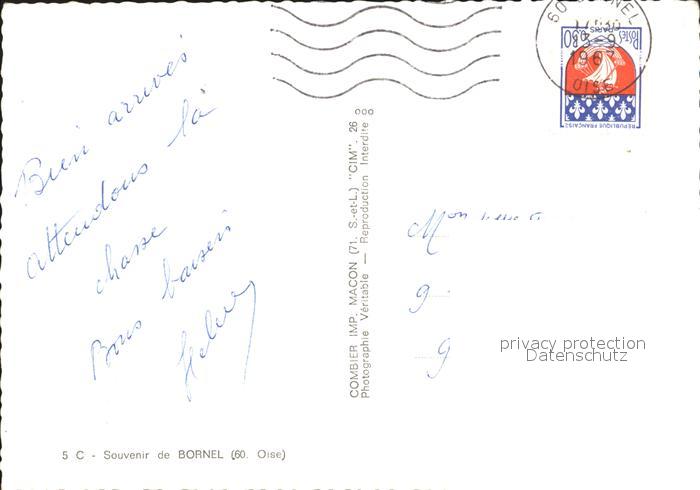 Bien arrivés
attendons la
chasse
Bons baisers
5 C - Souvenir de BORNEL (60. Oise)
COMBIER IMP. MACON (71, S.-et-L.) "CIM". 26
Photographie Véritable — Reproduction Interdite
60 BORNEL
OISE
POSTES
PARIS
0,30
REPUBLIQUE FRANÇAISE
privacy protection
Datenschutz